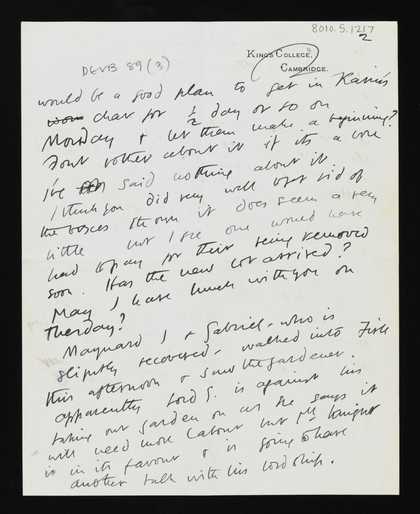 8010.5.1217
2
KING'S COLLEGE,
CAMBRIDGE.
DEVB 89 (3)
would be a good plan to get in Karin's
char for ½ day or so on
Monday & let them make a beginning?
Dont bother about it if its a bore
I've said nothing about it.
I think you did very well to get rid of
the boxes tho'
it does seem a very
little but I see one would have
had to pay for their being removed
soon. Has the new cot arrived?
May I have lunch with you on
Thursday?
Maynard I & Gabriel - who is
slightly recovered - walked into Firle
this afternoon & saw the gardener.
apparently Lord G. is against his
taking our garden on as he says it
will need more labour but Mr
is in its favour & is going to have
another talk with his lordship.